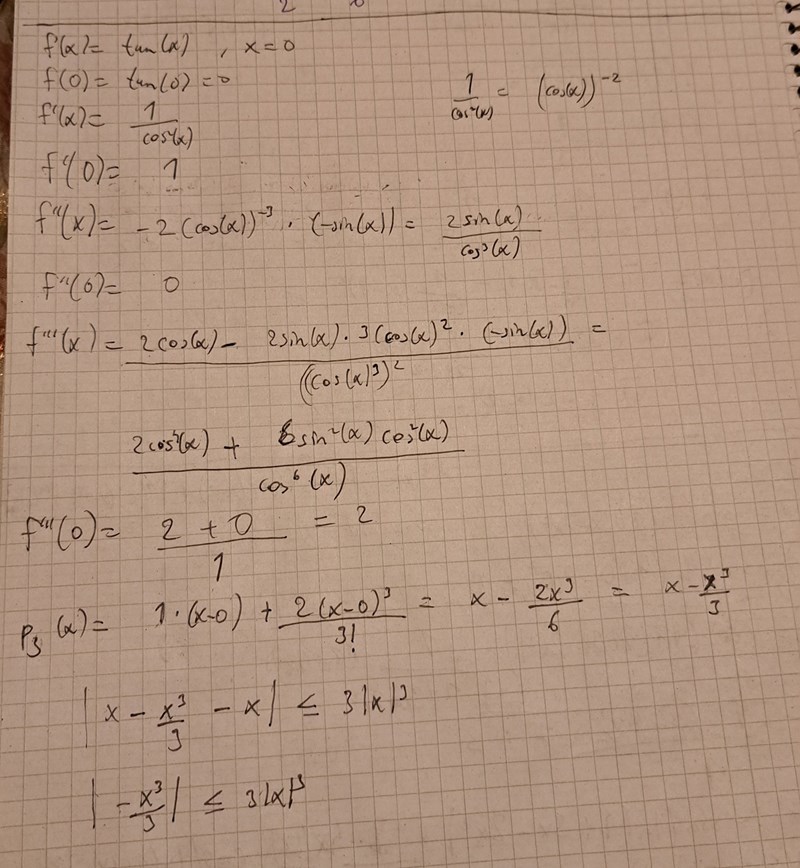 f(x) = tan(x) , x=0
f(0) = tan(0) = 0
f'(x) = 1/cos²(x)    1/cos²(x) = (cos(x))⁻²
f'(0) = 1
f''(x) = -2(cos(x))⁻³ · (-sin(x)) = 2sin(x)/cos³(x)
f''(0) = 0
f'''(x) = (2cos(x) - 2sin(x) · 3(cos(x)² · (-sin(x)))/((cos(x)³)² =
(2cos²(x) + 6sin²(x) cos²(x))/cos⁶(x)
f'''(0) = (2+0)/1 = 2
P₃(x) = 1·(x-0) + 2(x-0)³/3! = x - 2x³/6 = x - x³/3
|x - x³/3 - x| ≤ 3|x|³
|-x³/3| ≤ 3|x|³